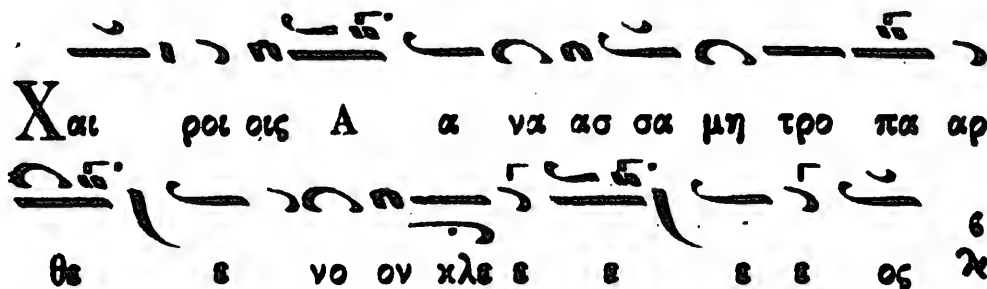 Χαι ροι οις Α α να ασ σα μη τρο πα αρ
θε ε νο ον κλε ε ε ε ε ος